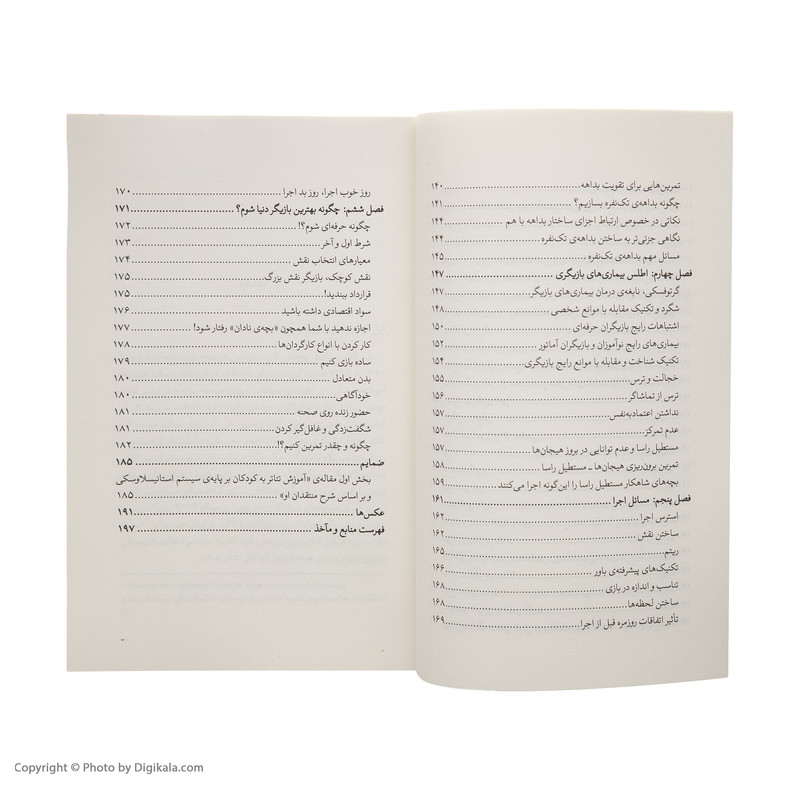 تمرین‌هایی برای تقویت بداهه ........ ۱۴۰
چگونه بداهه‌ی تک‌نفره بسازیم؟ ........ ۱۴۱
نکاتی در خصوص ارتباط اجزای ساختار بداهه با هم ........ ۱۴۴
نگاهی جزئی‌تر به ساختن بداهه‌ی تک‌نفره ........ ۱۴۴
مسائل مهم بداهه‌ی تک‌نفره ........ ۱۴۵
فصل چهارم: اطلس بیماری‌های بازیگری ........ ۱۴۷
گرتوفسکی، نابغه‌ی درمان بیماری‌های بازیگر ........ ۱۴۷
شگرد و تکنیک مقابله با موانع شخصی ........ ۱۴۸
اشتباهات رایج بازیگران حرفه‌ای ........ ۱۵۰
بیماری‌های رایج نوآموزان و بازیگران آماتور ........ ۱۵۲
تکنیک شناخت و مقابله با موانع رایج بازیگری ........ ۱۵۴
خجالت و ترس ........ ۱۵۵
ترس از تماشاگر ........ ۱۵۶
نداشتن اعتمادبه‌نفس ........ ۱۵۷
عدم تمرکز ........ ۱۵۷
مستطیل راسا و عدم توانایی در بروز هیجان‌ها ........ ۱۵۷
تمرین برون‌ریزی هیجان‌ها ـ مستطیل راسا ........ ۱۵۸
بچه‌های شاهکار مستطیل راسا را این‌گونه اجرا می‌کنند ........ ۱۵۹
فصل پنجم: مسائل اجرا ........ ۱۶۱
استرس اجرا ........ ۱۶۲
ساختن نقش ........ ۱۶۲
ریتم ........ ۱۶۵
تکنیک‌های پیشرفته‌ی باور ........ ۱۶۶
تناسب و اندازه در بازی ........ ۱۶۸
ساختن لحظه‌ها ........ ۱۶۸
تأثیر اتفاقات روزمره قبل از اجرا ........ ۱۶۹
روز خوب اجرا، روز بد اجرا ........ ۱۷۰
فصل ششم: چگونه بهترین بازیگر دنیا شوم؟ ........ ۱۷۱
چگونه حرفه‌ای شوم؟! ........ ۱۷۲
شرط اول و آخر ........ ۱۷۳
معیارهای انتخاب نقش ........ ۱۷۴
نقش کوچک، بازیگر نقش بزرگ ........ ۱۷۵
قرارداد ببندید! ........ ۱۷۵
سواد اقتصادی داشته باشید ........ ۱۷۶
اجازه ندهید با شما همچون «بچه‌ی نادان» رفتار شود! ........ ۱۷۷
کار کردن با انواع کارگردان‌ها ........ ۱۷۸
ساده بازی کنیم ........ ۱۷۹
بدن متعادل ........ ۱۸۰
خودآگاهی ........ ۱۸۰
حضور زنده روی صحنه ........ ۱۸۱
شگفت‌زدگی و غافل‌گیر کردن ........ ۱۸۱
چگونه و چقدر تمرین کنیم؟! ........ ۱۸۲
ضمایم ........ ۱۸۵
بخش اول مقاله‌ی «آموزش تئاتر به کودکان بر پایه‌ی سیستم استانیسلاوسکی
و بر اساس شرح منتقدان او» ........ ۱۸۵
عکس‌ها ........ ۱۹۱
فهرست منابع و مآخذ ........ ۱۹۷
Copyright © Photo by Digikala.com